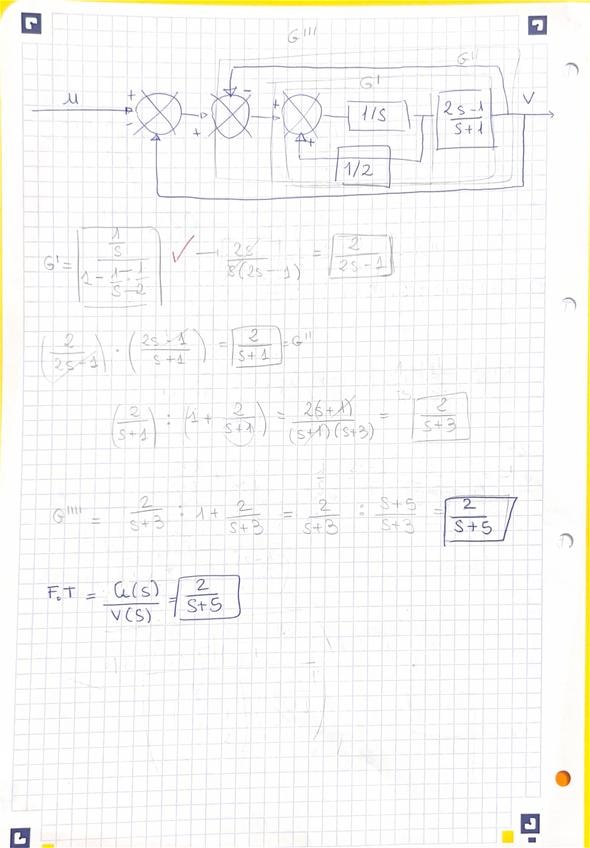 G'''
G''
G'
u + - + - + + 1/s 2s-1/s+1 V
1/2
G' = 1/s / 1 - 1/s · 1/2 ✓ → 2s / s(2s-1) = 2 / 2s-1
(2 / 2s-1) · (2s-1 / s+1) = 2 / s+1 = G''
(2 / s+1) : (1 + 2 / s+1) = 2(s+1) / (s+1)(s+3) = 2 / s+3
G'''' = 2 / s+3 : 1 + 2 / s+3 = 2 / s+3 : s+5 / s+3 = 2 / s+5
F.T = U(s) / V(s) = 2 / s+5